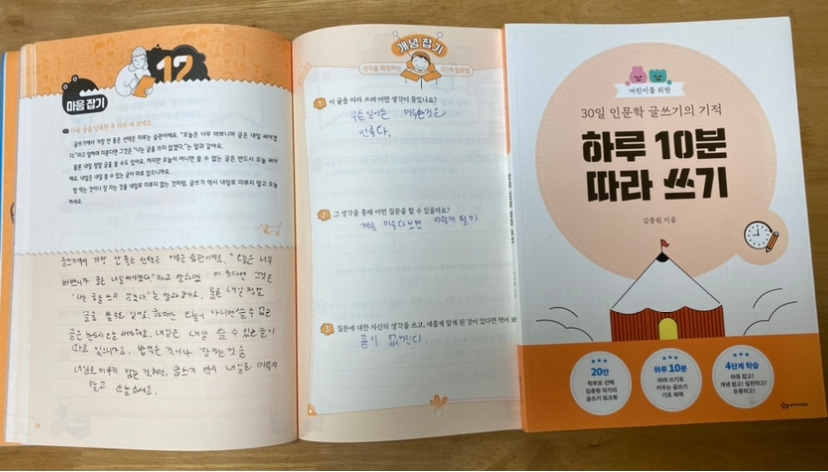 12
마음 잡기
다음 글을 낭독한 후 따라 써 보세요.
글쓰기에서 가장 안 좋은 선택은 미루는 습관이에요. "오늘은 너무 바쁘니까 글은 내일 써야겠
다."라고 말하며 미룬다면 그것은 "나는 글을 쓰지 않겠다."는 말과 같아요.
물론 내일 정말 글을 쓸 수도 있어요. 하지만 오늘이 아니면 쓸 수 없는 글은 반드시 오늘 써야
해요. 내일은 내일 쓸 수 있는 글이 따로 있으니까요.
밥 먹는 것이나 잠 자는 것을 내일로 미루지 않는 것처럼, 글쓰기 역시 내일로 미루지 말고 오늘
하세요.
글쓰기에서 가장 안 좋은 선택은 미루는 습관이에요. "오늘은 너무
바쁘니까 글은 내일써야겠다."라고 말하며 미룬다면 그것은
"나는 글을 쓰지 않겠다."는 말과 같아요. 물론 내일 정말
글을 쓸 수도 있어요. 하지만 오늘이 아니면 쓸 수 없는
글은 반드시 오늘 써야해요. 내일은 내일 쓸 수 있는 글이
따로 있으니까요. 밥먹는 것이나 잠자는 것을
내일로 미루지 않는 것처럼, 글쓰기 역시 내일로 미루지
말고 오늘 하세요.
개념 잡기
생각을 확장하는 3단계 질문법
1 이 글을 따라 쓰며 어떤 생각이 들었나요?
무슨 일이든 미루는것은
안좋다.
2 그 생각을 통해 어떤 질문을 할 수 있을까요?
계속 미루다보면 어떻게 될까
3 질문에 대한 자신의 생각을 쓰고, 새롭게 알게 된 것이 있다면 적어 보
끝이 없겠다
어린이를 위한
30일 인문학 글쓰기의 기적
하루 10분
따라 쓰기
김종원 지음
20만
학부모 선택
김종원 작가의
글쓰기 워크북
하루 10분
따라 쓰기로
키우는 글쓰기
기초 체력
4단계 학습
마음 잡고!
개념 잡고! 실천하고!
응용하고!